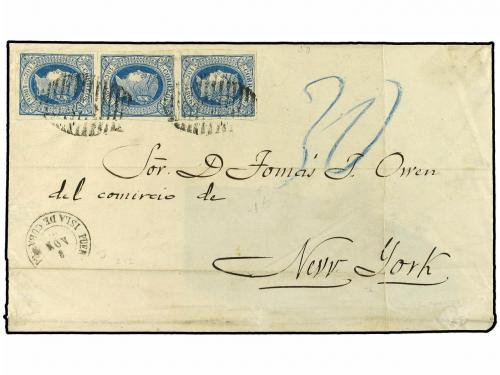 30
Sor. D Tomás T. Owen
del comircio de
New York
ISLA DE CUBA